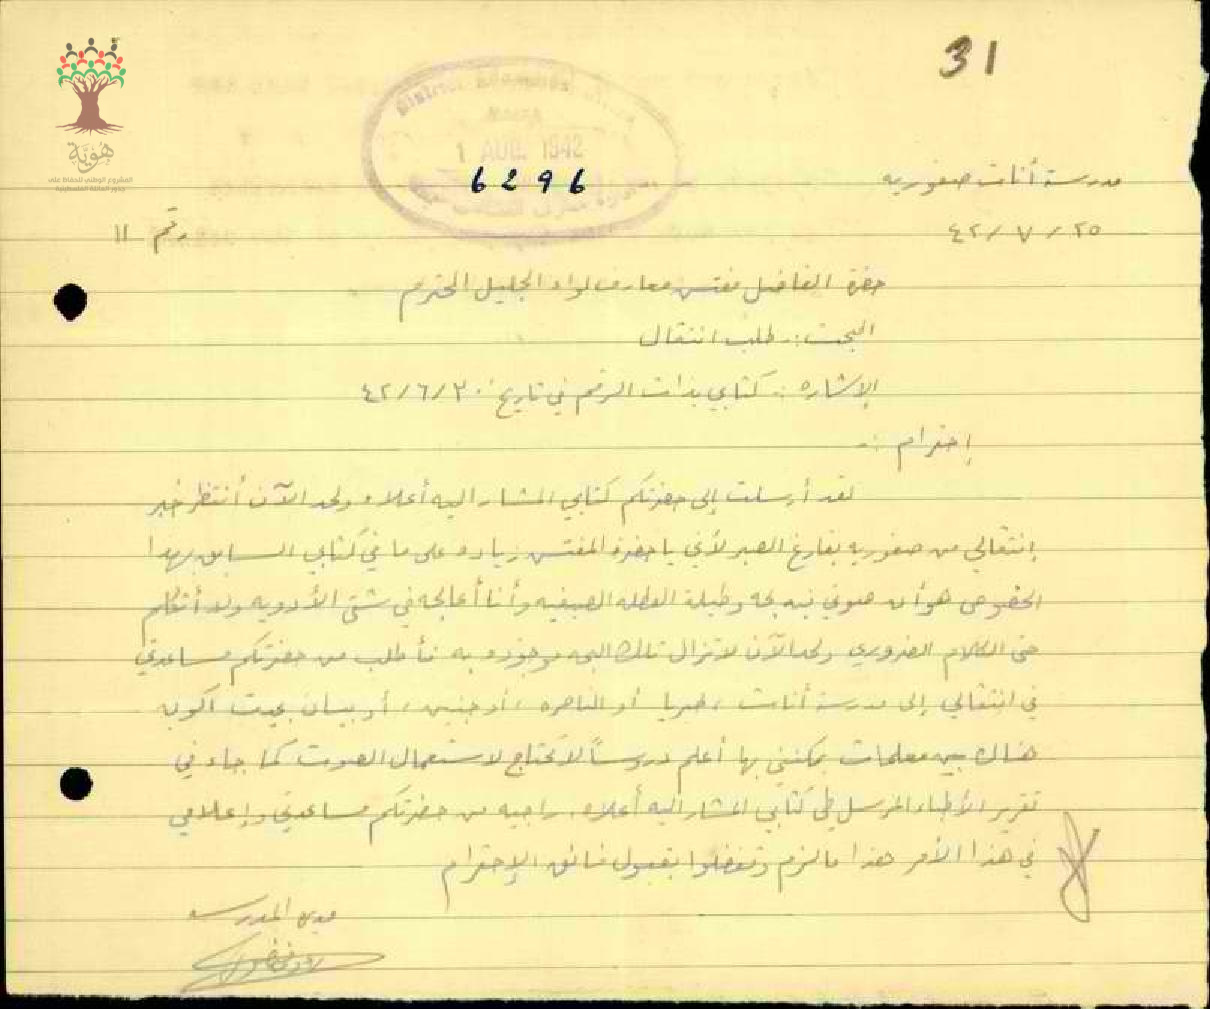 31
هوية
المشروع الوطني للحفاظ على
جذور العائلة الفلسطينية
District
1 AUG. 1942
6296
مدرسة أناث صفوريه
٢٥/٧/٤٢
رقم ١١
حضرة الفاضل مفتش معارف لواء الجليل المحترم
البحث :- طلب انتقال
الإشاره :- كتابي بذات الرقم في تاريخ ٣٠/٦/٤٢
إحترام :-
لقد أرسلت إلى حضرتكم كتابي المشار اليه أعلاه ولحد الآن أنتظر خبر
إنتقالي من صفوريه بفارغ الصبر لأني يا حضرة المفتش زياده على ما في كتابي السابق بهذا
الخصوص هو أن صوتي فيه بحه وطيلة العطله الصيفيه وأنا أعالجه في شتى الأدويه ولا أتكلم
حتى الكلام الضروري ولحد الآن لا تزال تلك البحه موجوده به فأطلب من حضرتكم مساعدتي
في انتقالي إلى مدرسة أناث ، طبريا أو الناصره ، أو جنين ، أو بيسان بحيث أكون
هناك بين معلمات يمكنني بها أعلم دروساً لا تحتاج لاستعمال الصوت كما جاء في
تقرير الأطباء المرسل طي كتابي المشار اليه أعلاه. راجيه من حضرتكم مساعدتي وإعلامي
في هذا الأمر هذا ما لزم وتفضلوا بقبول فائق الإحترام
المدرسه